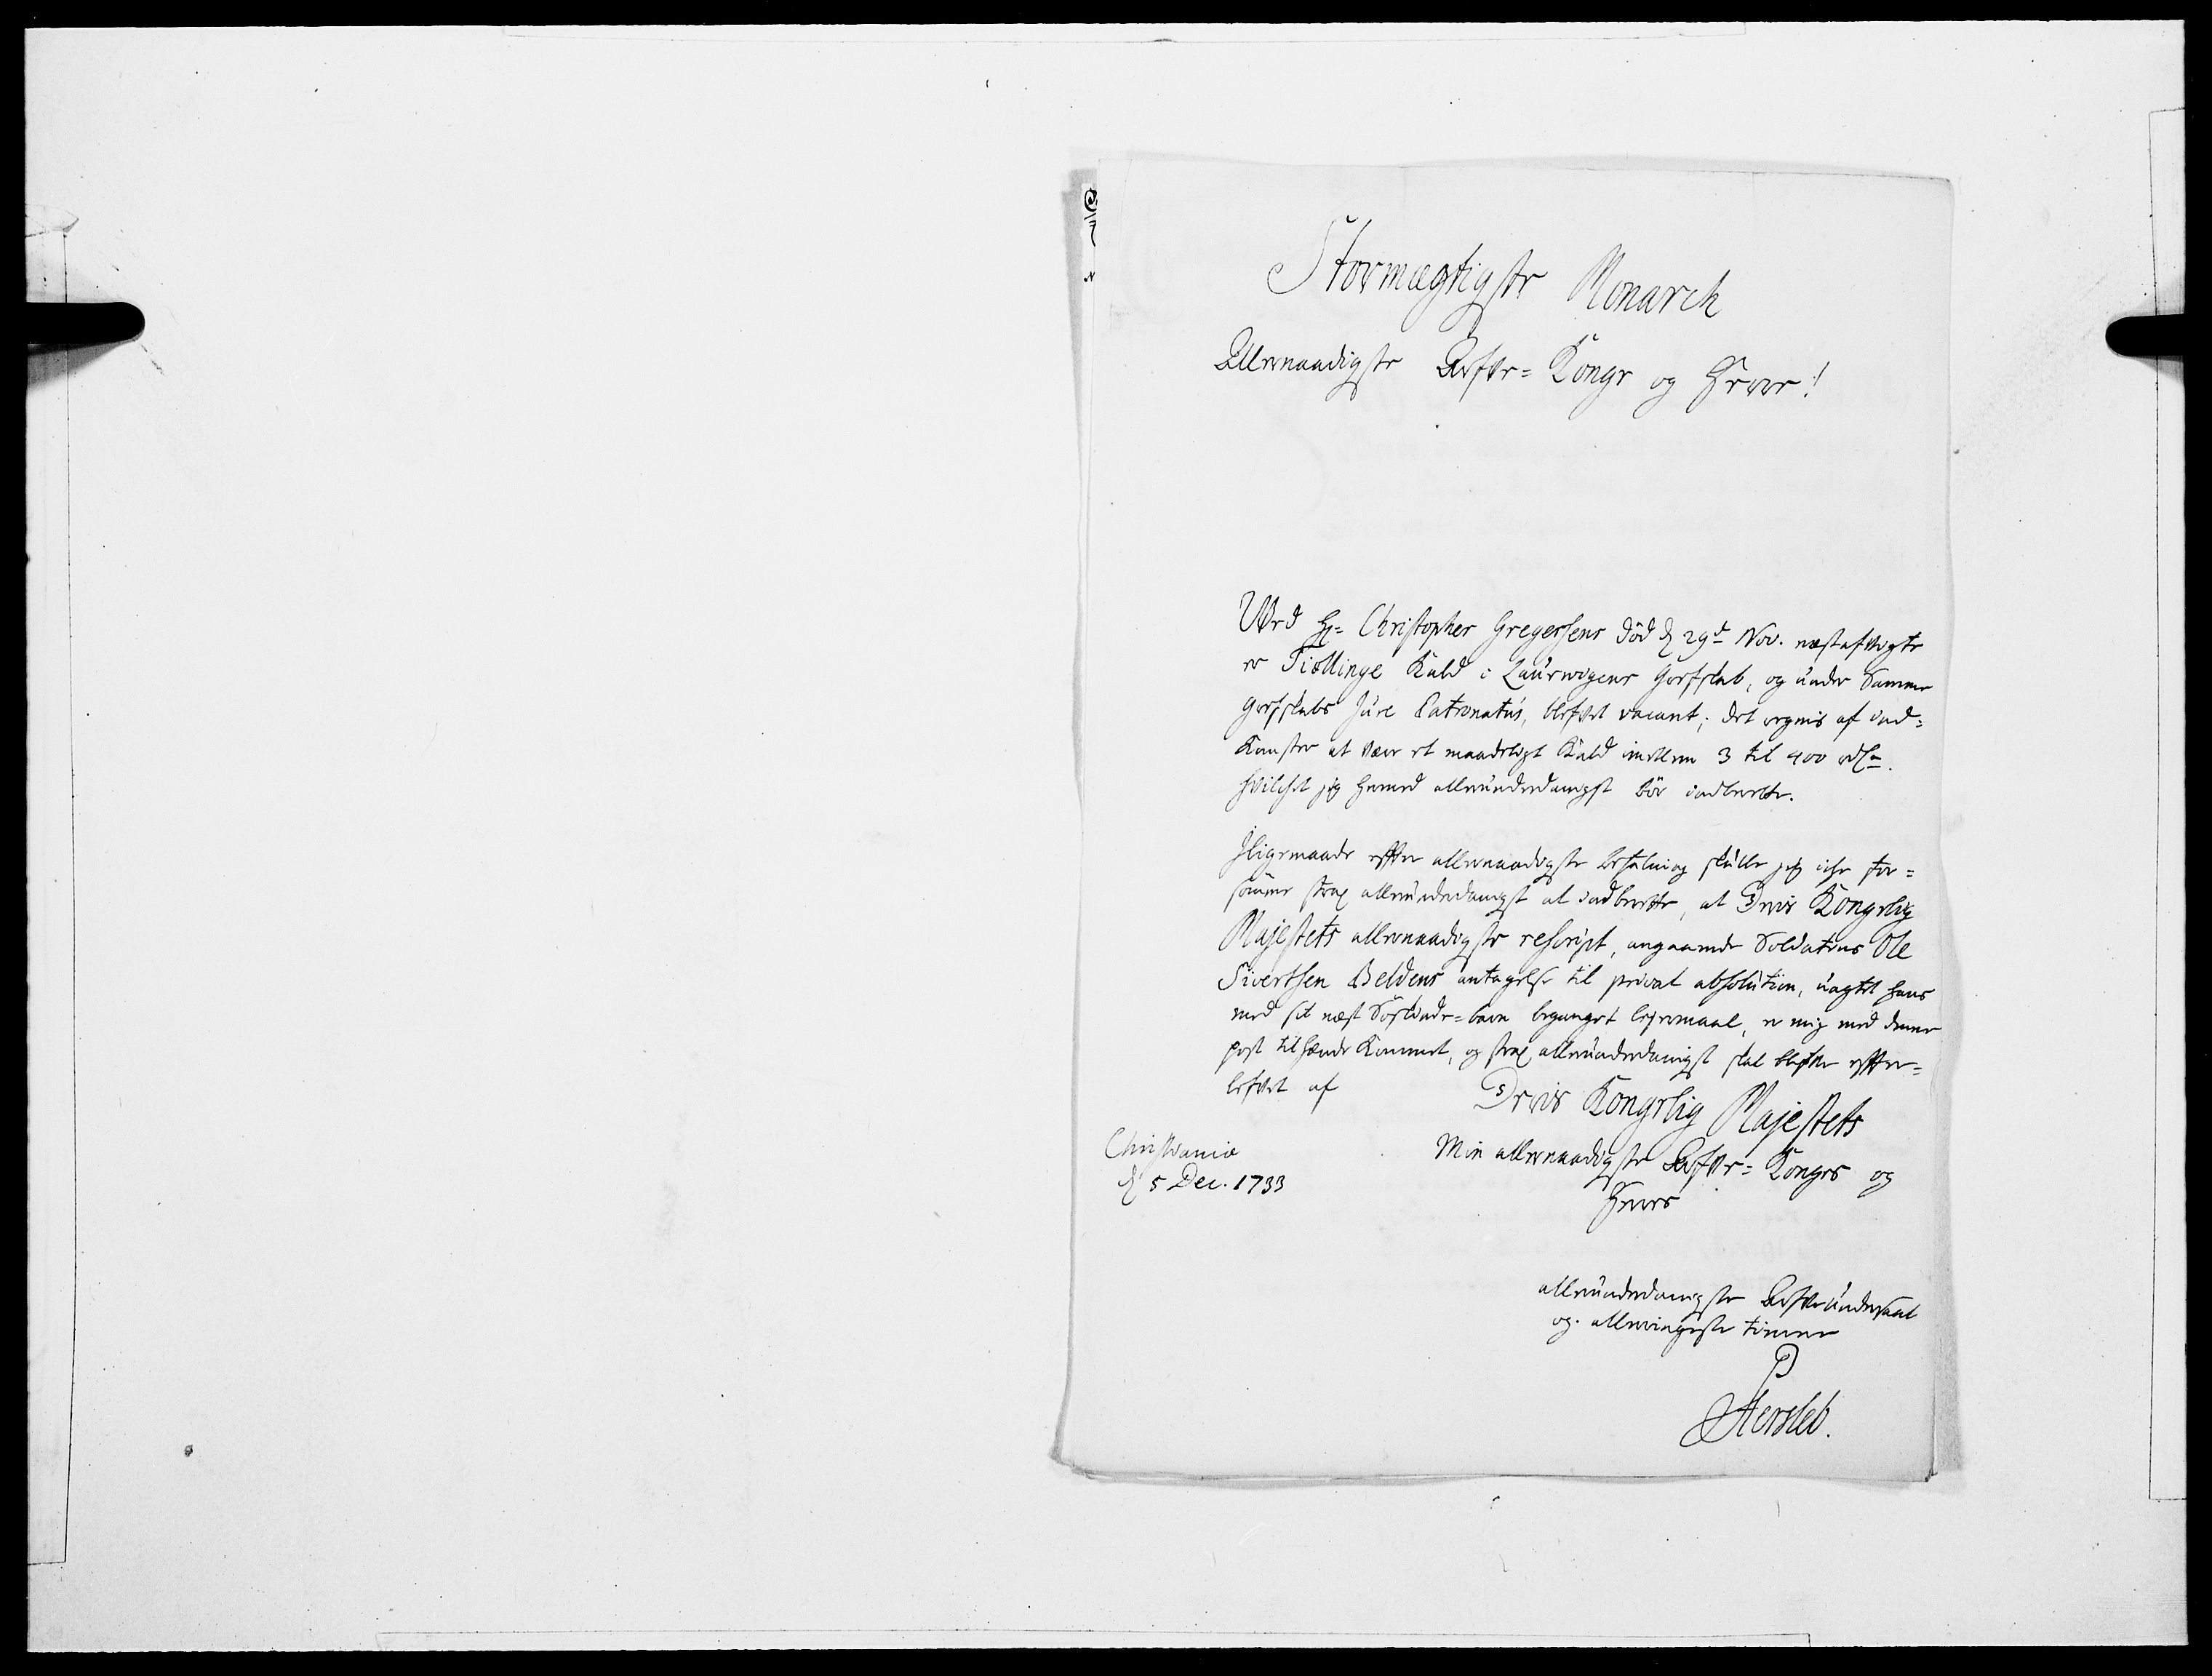 Stormægtigste Monarch
Allernaadigste Arfve= Konge og Herre!
Ved Hr= Christopher Gregersens död d 29de Nov. næstafvigte
er Tiøllinge Kald i Laurwigens Grefskab, og under Samme
Grefskabs Jure Patronatús, blefvet vacant; det regnis af ind=
Komster at være et maadeligt Kald imellem 3 til 400 rdlr.
hvilchet jeg hermed allerunderdanigst bör indberette.
Jligemaade efter allernaadigste befaling skulle jeg iche for=
sömme strax allerunderdanigst at indberette, at Deris Kongelig
Majestets allernaadigste rescript, angaaende Soldatens Ole
Sivertsen Beldens antagelse til privat absolution, uagtet hans
med sit næst Söskinde=barn begangne lejermaal, er mig med denne
post tilhænde Kommet, og strax allerunderdanigst skal blifve effter=
lefvet af
Deris Kongelig Majestets
Min allernaadigste Arfve= Konges og
Herres
Christiania
d 5 Dec. 1733
allerunderdanigste Arfveundersaat
og allerringeste tiener
P
Hersleb.